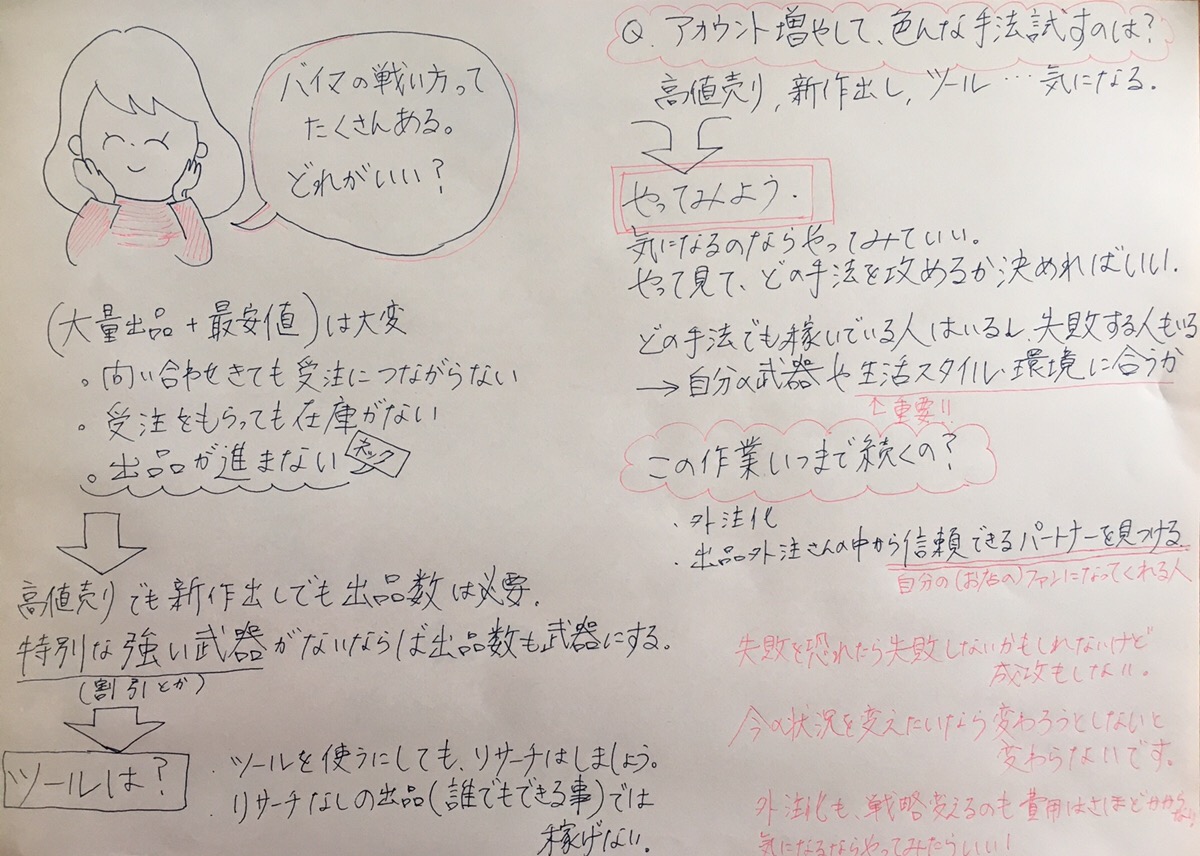 バイマの戦い方って
たくさんある。
どれがいい?
(大量出品+最安値)は大変
。問い合わせきても受注につながらない
。受注をもらっても在庫がない
。出品が進まない
ネック
高値売りでも新作出しでも出品数は必要.
特別な強い武器がないならば出品数も武器にする。
(割引とか)
ツールは?
・ツールを使うにしても、リサーチはしましょう。
リサーチなしの出品(誰でもできる事)では
稼げない。
Q. アカウント増やして、色んな手法試すのは?
高値売り, 新作出し, ツール…気になる.
やってみよう.
気になるのならやってみていい。
やって見て、どの手法を攻めるか決めればいい.
どの手法でも稼いでいる人はいるし、失敗する人もいる
→自分の武器や生活スタイル・環境に合うか
↑重要!!
この作業いつまで続くの?
・外注化
・出品外注さんの中から信頼できるパートナーを見つける
自分の(お店の)ファンになってくれる人
失敗を恐れたら失敗しないかもしれないけど
成攻もしない。
今の状況を変えたいなら変わろうとしないと
変わらないです。
外注化も、戦略変えるのも費用はさほどかからない!
気になるならやってみたらいい!